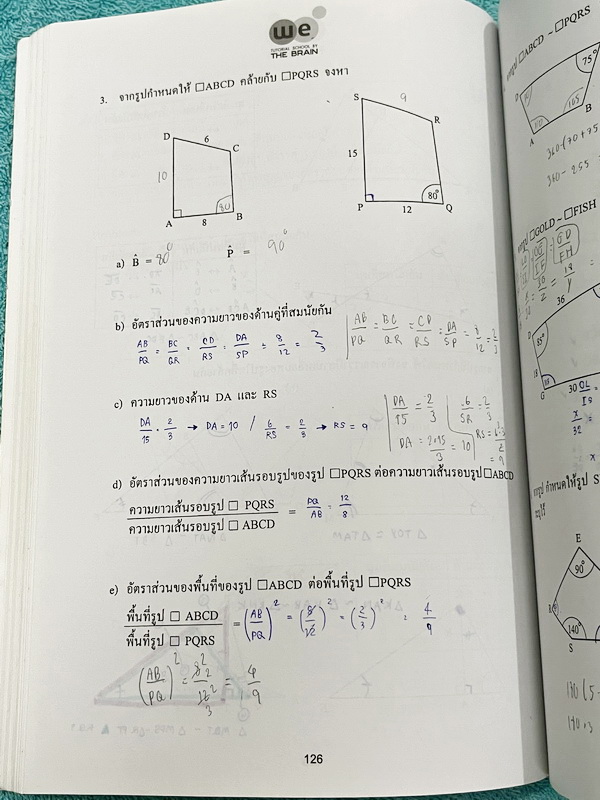 we
TUTORIAL SCHOOL BY
THE BRAIN
3. จากรูปกำหนดให้ □ABCD คล้ายกับ □PQRS จงหา
D 6 C
10
80
A 8 B
S 9 R
15
80°
P 12 Q
a) B̂ = 80° P̂ = 90°
b) อัตราส่วนของความยาวของด้านคู่ที่สมนัยกัน
AB/PQ = BC/QR = CD/RS = DA/SP = 8/12 = 2/3
AB/PQ = BC/QR = CD/RS = DA/SP = 8/12 = 2/3
c) ความยาวของด้าน DA และ RS
DA/15 = 2/3 → DA = 10 / 6/RS = 2/3 → RS = 9
DA/15 = 2/3
6/SR = 2/3
DA = 2×15/3 = 10
d) อัตราส่วนของความยาวเส้นรอบรูปของรูป □PQRS ต่อความยาวเส้นรอบรูป□ABCD
ความยาวเส้นรอบรูป □ PQRS
ความยาวเส้นรอบรูป □ ABCD
= PQ/AB = 12/8
e) อัตราส่วนของพื้นที่ของรูป □ABCD ต่อพื้นที่รูป □PQRS
พื้นที่รูป □ ABCD
พื้นที่รูป □ PQRS
= (AB/PQ)² = (8/12)² = (2/3)² = 4/9
126
□ABCD ~ □PQRS
75°
D
B
A
105
360-(70+75
360-255
□GOLD ~ □FISH
36
85°
18
G
30
E
90°
140°
S